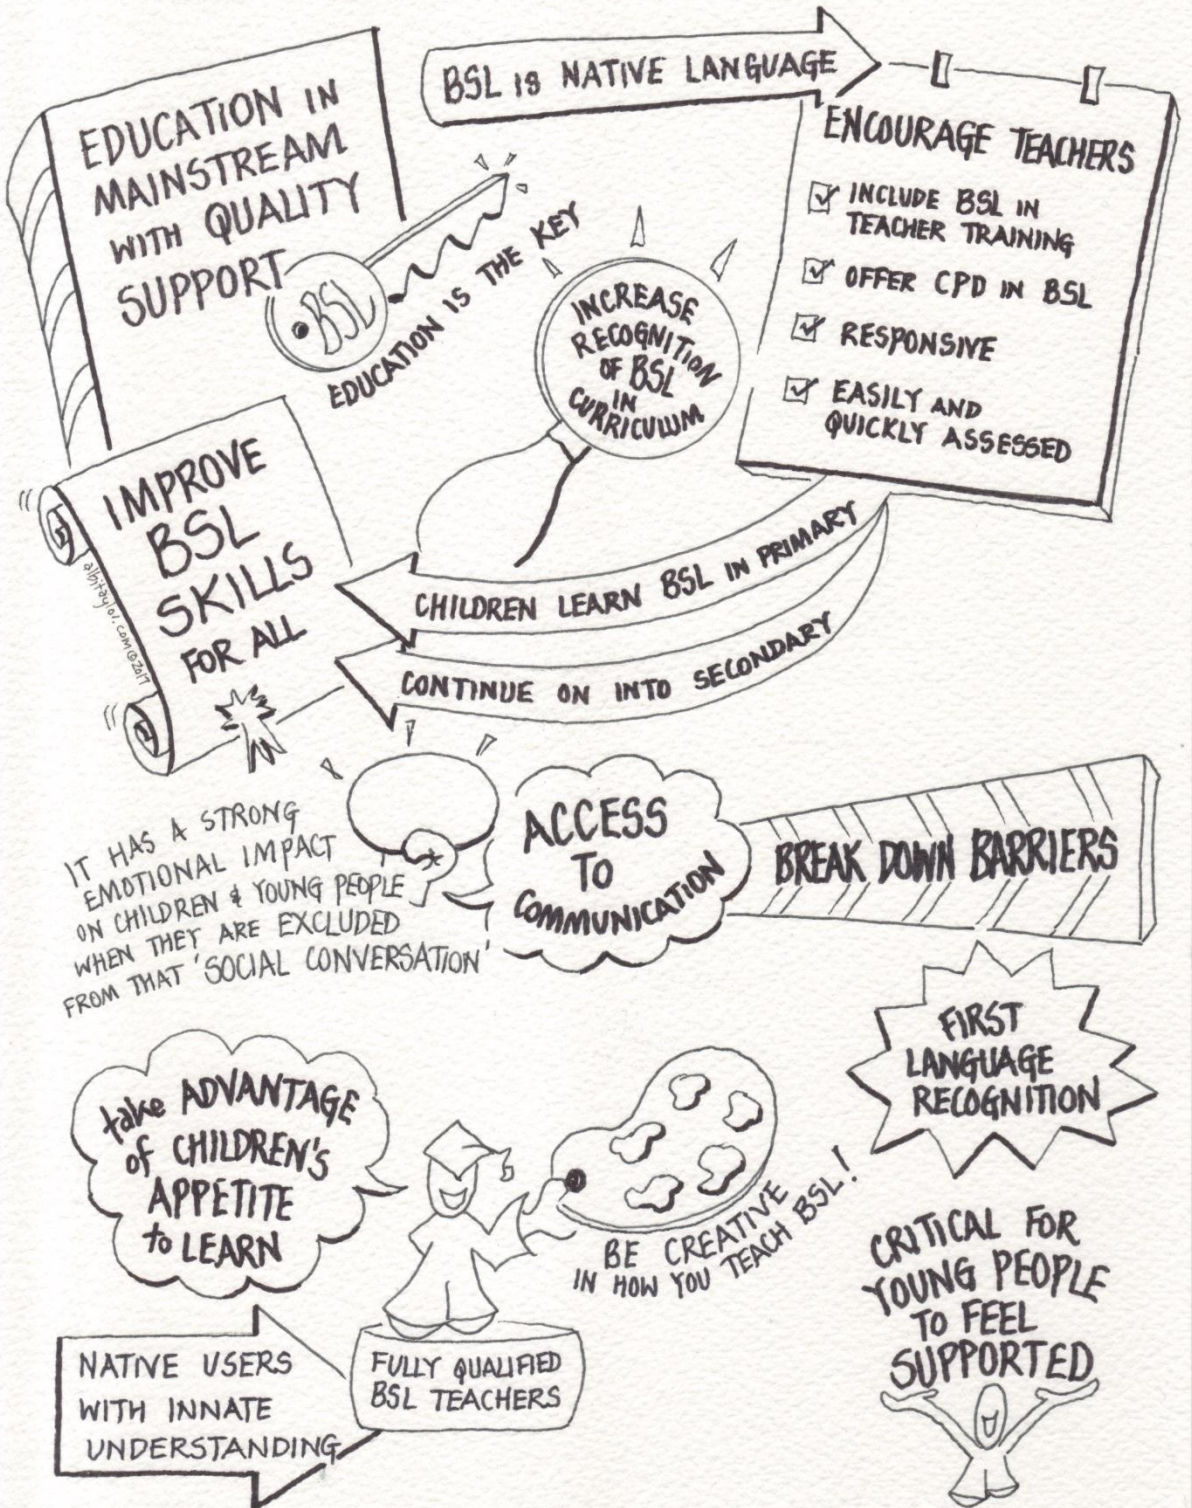 EDUCATION IN
MAINSTREAM
WITH QUALITY
SUPPORT
BSL
EDUCATION IS THE KEY
BSL IS NATIVE LANGUAGE
ENCOURAGE TEACHERS
INCLUDE BSL IN
TEACHER TRAINING
OFFER CPD IN BSL
RESPONSIVE
EASILY AND
QUICKLY ASSESSED
INCREASE
RECOGNITION
OF BSL
IN
CURRICULUM
CHILDREN LEARN BSL IN PRIMARY
CONTINUE ON INTO SECONDARY
IMPROVE
BSL
SKILLS
FOR ALL
albitaylor.com©2017
IT HAS A STRONG
EMOTIONAL IMPACT
ON CHILDREN & YOUNG PEOPLE
WHEN THEY ARE EXCLUDED
FROM THAT 'SOCIAL CONVERSATION'
ACCESS
TO
COMMUNICATION
BREAK DOWN BARRIERS
FIRST
LANGUAGE
RECOGNITION
take ADVANTAGE
of CHILDREN'S
APPETITE
to LEARN
BE CREATIVE
IN HOW YOU TEACH BSL!
CRITICAL FOR
YOUNG PEOPLE
TO FEEL
SUPPORTED
NATIVE USERS
WITH INNATE
UNDERSTANDING
FULLY QUALIFIED
BSL TEACHERS